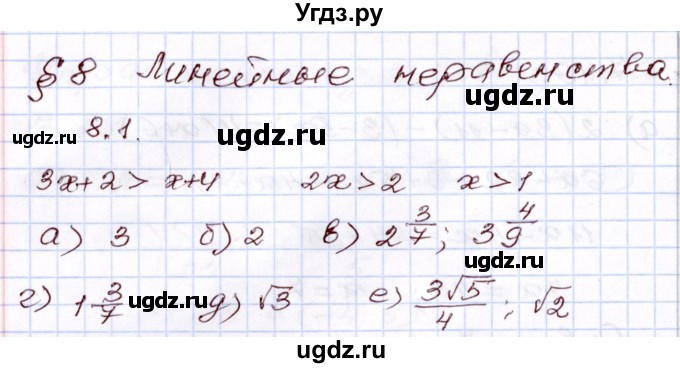 Угдз.ру
§ 8 Линейные неравенства.
ugdz.ru ugdz.ru
ugdz.ru 8.1. ugdz.ru
3x+2 > x+4 2x > 2 x > 1
а) 3 б) 2 в) 2 3/7; 3 4/9
г) 1 3/7 ugdz.ru д) √3 е) 3√5/4; √2
ugdz.ru ugdz.ru
ugdz.ru